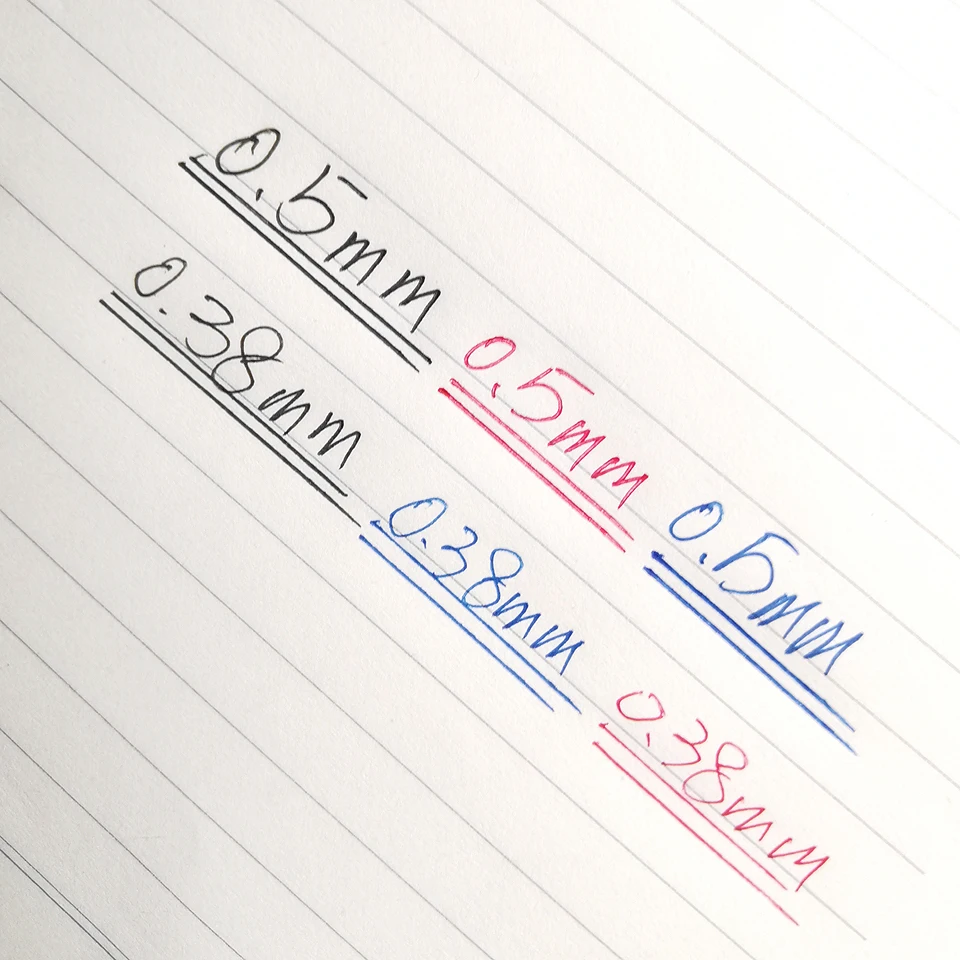 0.5mm 0.5mm 0.5mm
0.38mm 0.38mm 0.38mm